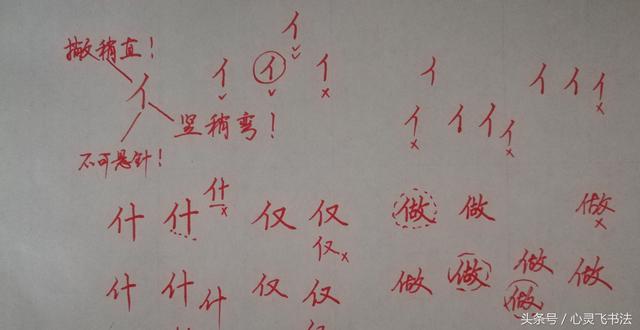 亻
撇稍直！ 亻 亻 亻 亻 亻 亻 亻
亻
竖稍弯！ 亻 亻 亻 亻
不可悬针！
什 什 什 仅 仅 做 做 做
仅
什 什 什 仅 仅 做 做 做 做
做
头条号／心灵飞书法